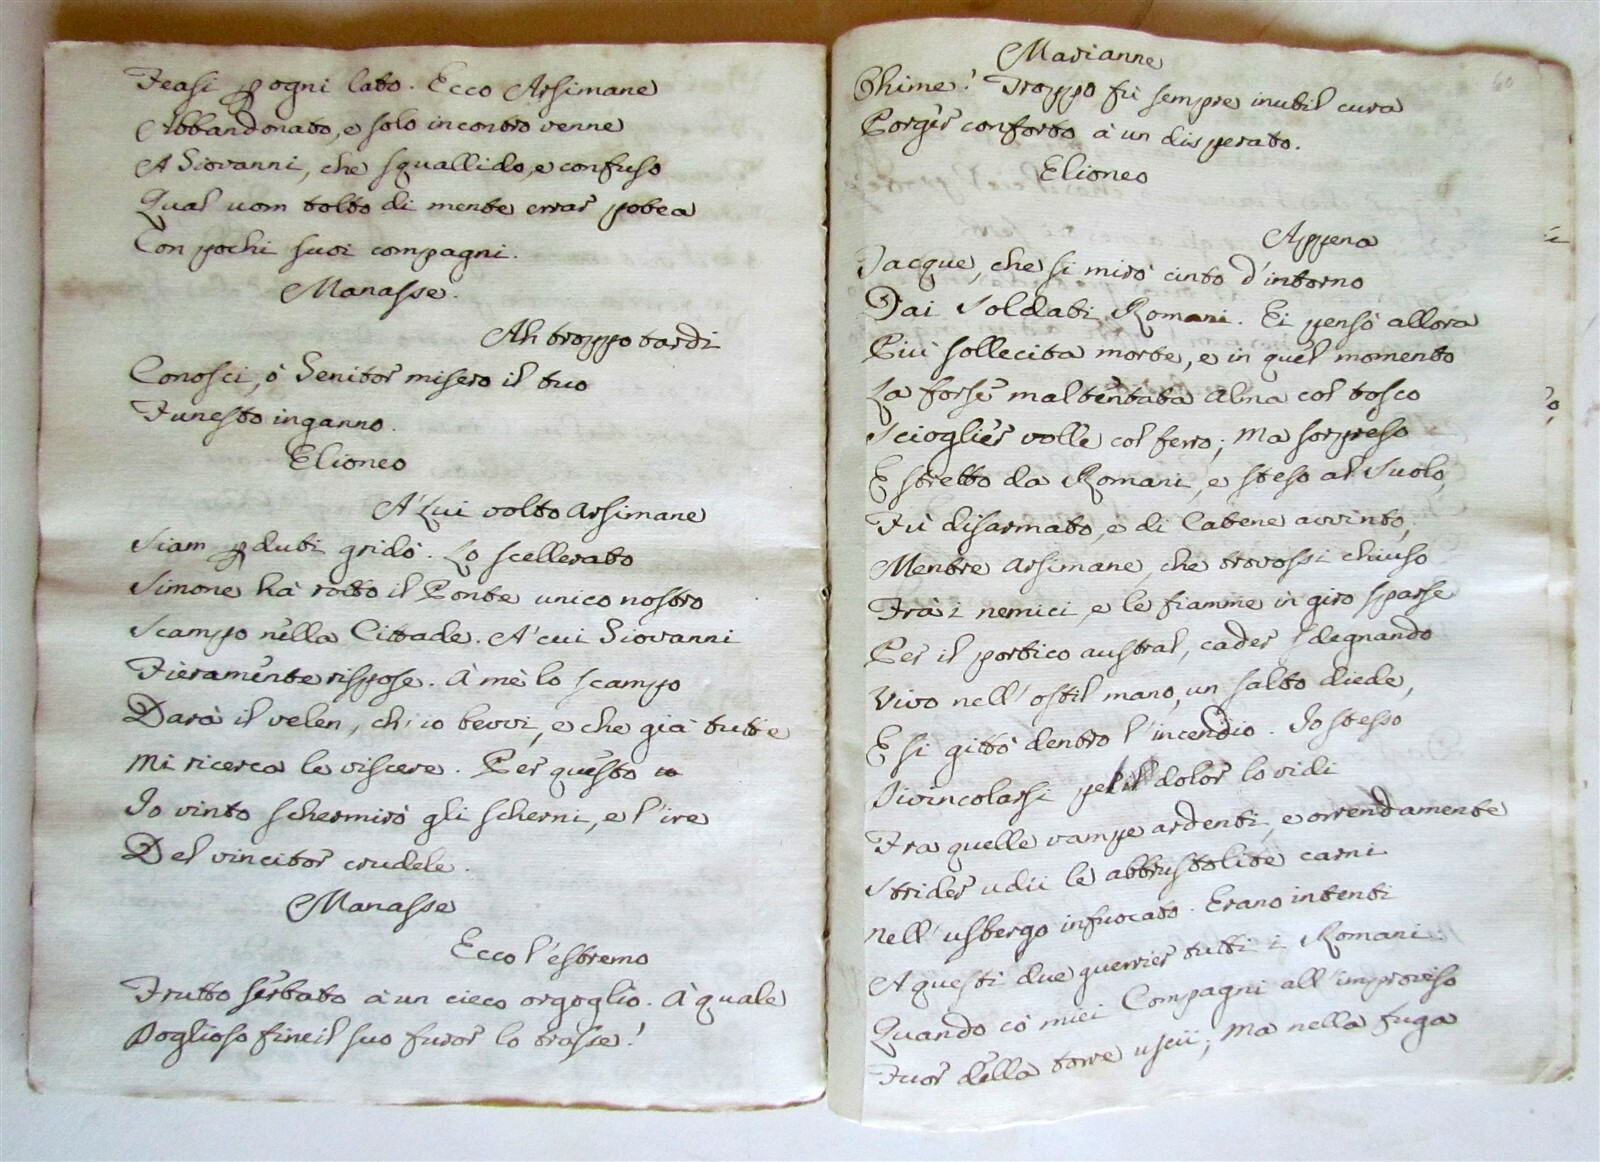 Feasi p ogni lato. Ecco Arsimane
Abbandonato, e solo incontro venne
A Giovanni, che squallido, e confuso
Qual uom tolto di mente errar potea
Con pochi suoi compagni.
Manasse.
Ah troppo tardi
Conosci, ò Genitor misero il tuo
Funesto inganno.
Elioneo
A' Lui volto Arsimane
Siam pduti gridò. Lo scellerato
Simone hà rotto il Ponte unico nostro
Scampo nella Cittade. A' cui Giovanni
Fieramente rispose. A mè lo scampo
Darà il velen, ch'io bevvi, e che già tutte
Mi ricerca le viscere. Per questo
Io vinto schermirò gli scherni, e l'ire
Del vincitor crudele.
Manasse
Ecco l'estremo
Frutto serbato à un cieco orgoglio. A quale
Doglioso fine il suo furor lo trasse!
60
Marianne
Ohime! Troppo fù sempre inutil cura
Porger conforto à un disperato.
Elioneo
Appena
Tacque, che si mirò cinto d'intorno
Dai Soldati Romani. Ei pensò allora
Più sollecita morte, e in quel momento
La forse mal tentata alma col tosco
Scioglier volle col ferro; Ma sorpreso
E stretto da Romani, e steso al Suolo,
Fù disarmato, e di Catene avvinto,
Mentre Arsimane, che trovossi chiuso
Frà i nemici, e le fiamme in giro sparse
Per il portico austral, cader sdegnando
Vivo nell' ostil mano, un salto diede,
E si gittò dentro l'incendio. Io stesso
Divincolarsi pel dolor lo vidi
Fra quelle vampe ardenti, e orrendamente
Strider udii le abbrustolite carni
Nell' usbergo infuocato. Erano intenti
A questi due guerrier tutti i Romani.
Quando có miei Compagni all' improviso
Fuor della torre uscii; Ma nella fuga